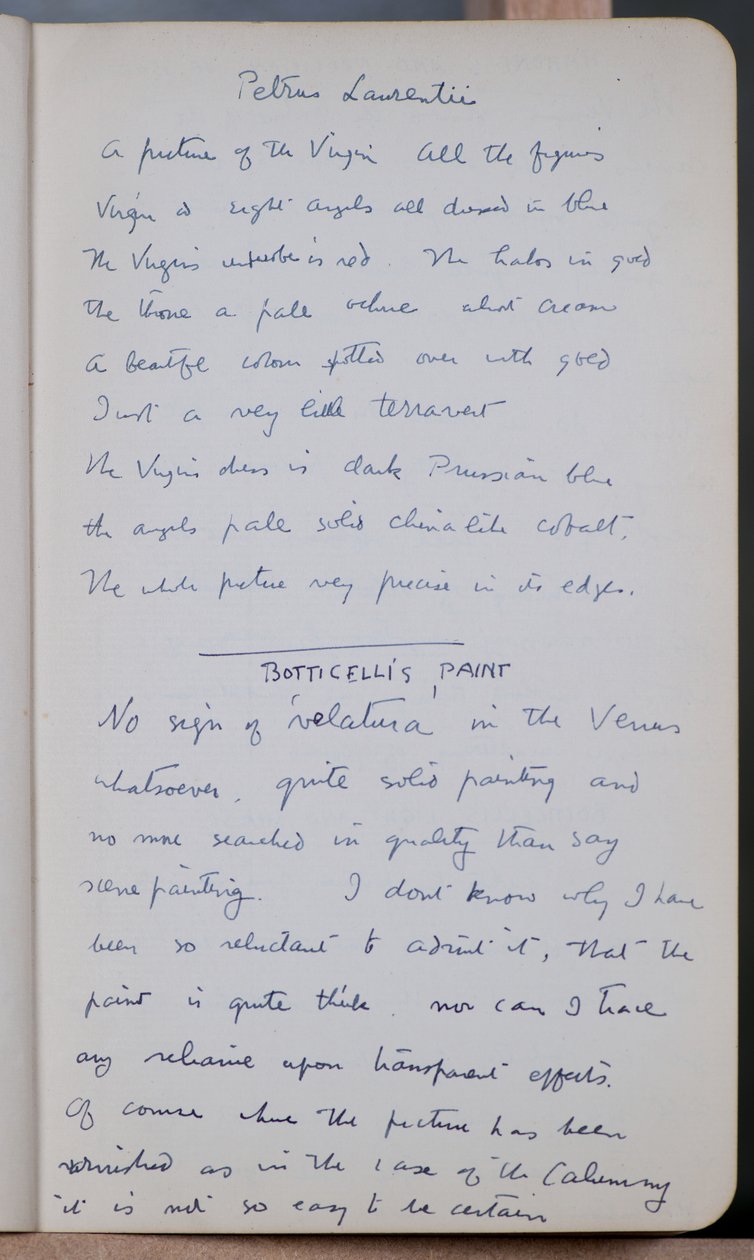 Petrus Laurentii
A picture of the Virgin All the figures
Virgin & eight angels all dressed in blue
The Virgin's underrobe is red. The halos in gold
the throne a pale ochre almost cream
A beautiful colour spotted over with gold
Just a very little terravert
The Virgins dress is dark Prussian blue
the angels pale solid china like cobalt.
The whole picture very precise in its edges.
BOTTICELLI'S PAINT
No sign of 'velatura' in the Venus
whatsoever, quite solid painting and
no more searched in quality than say
scene painting. I dont know why I have
been so reluctant to admit it, that the
paint is quite thick. nor can I trace
any reliance upon transparent effects.
Of course where the picture has been
varnished as in the case of the Calumny
it is not so easy to be certain